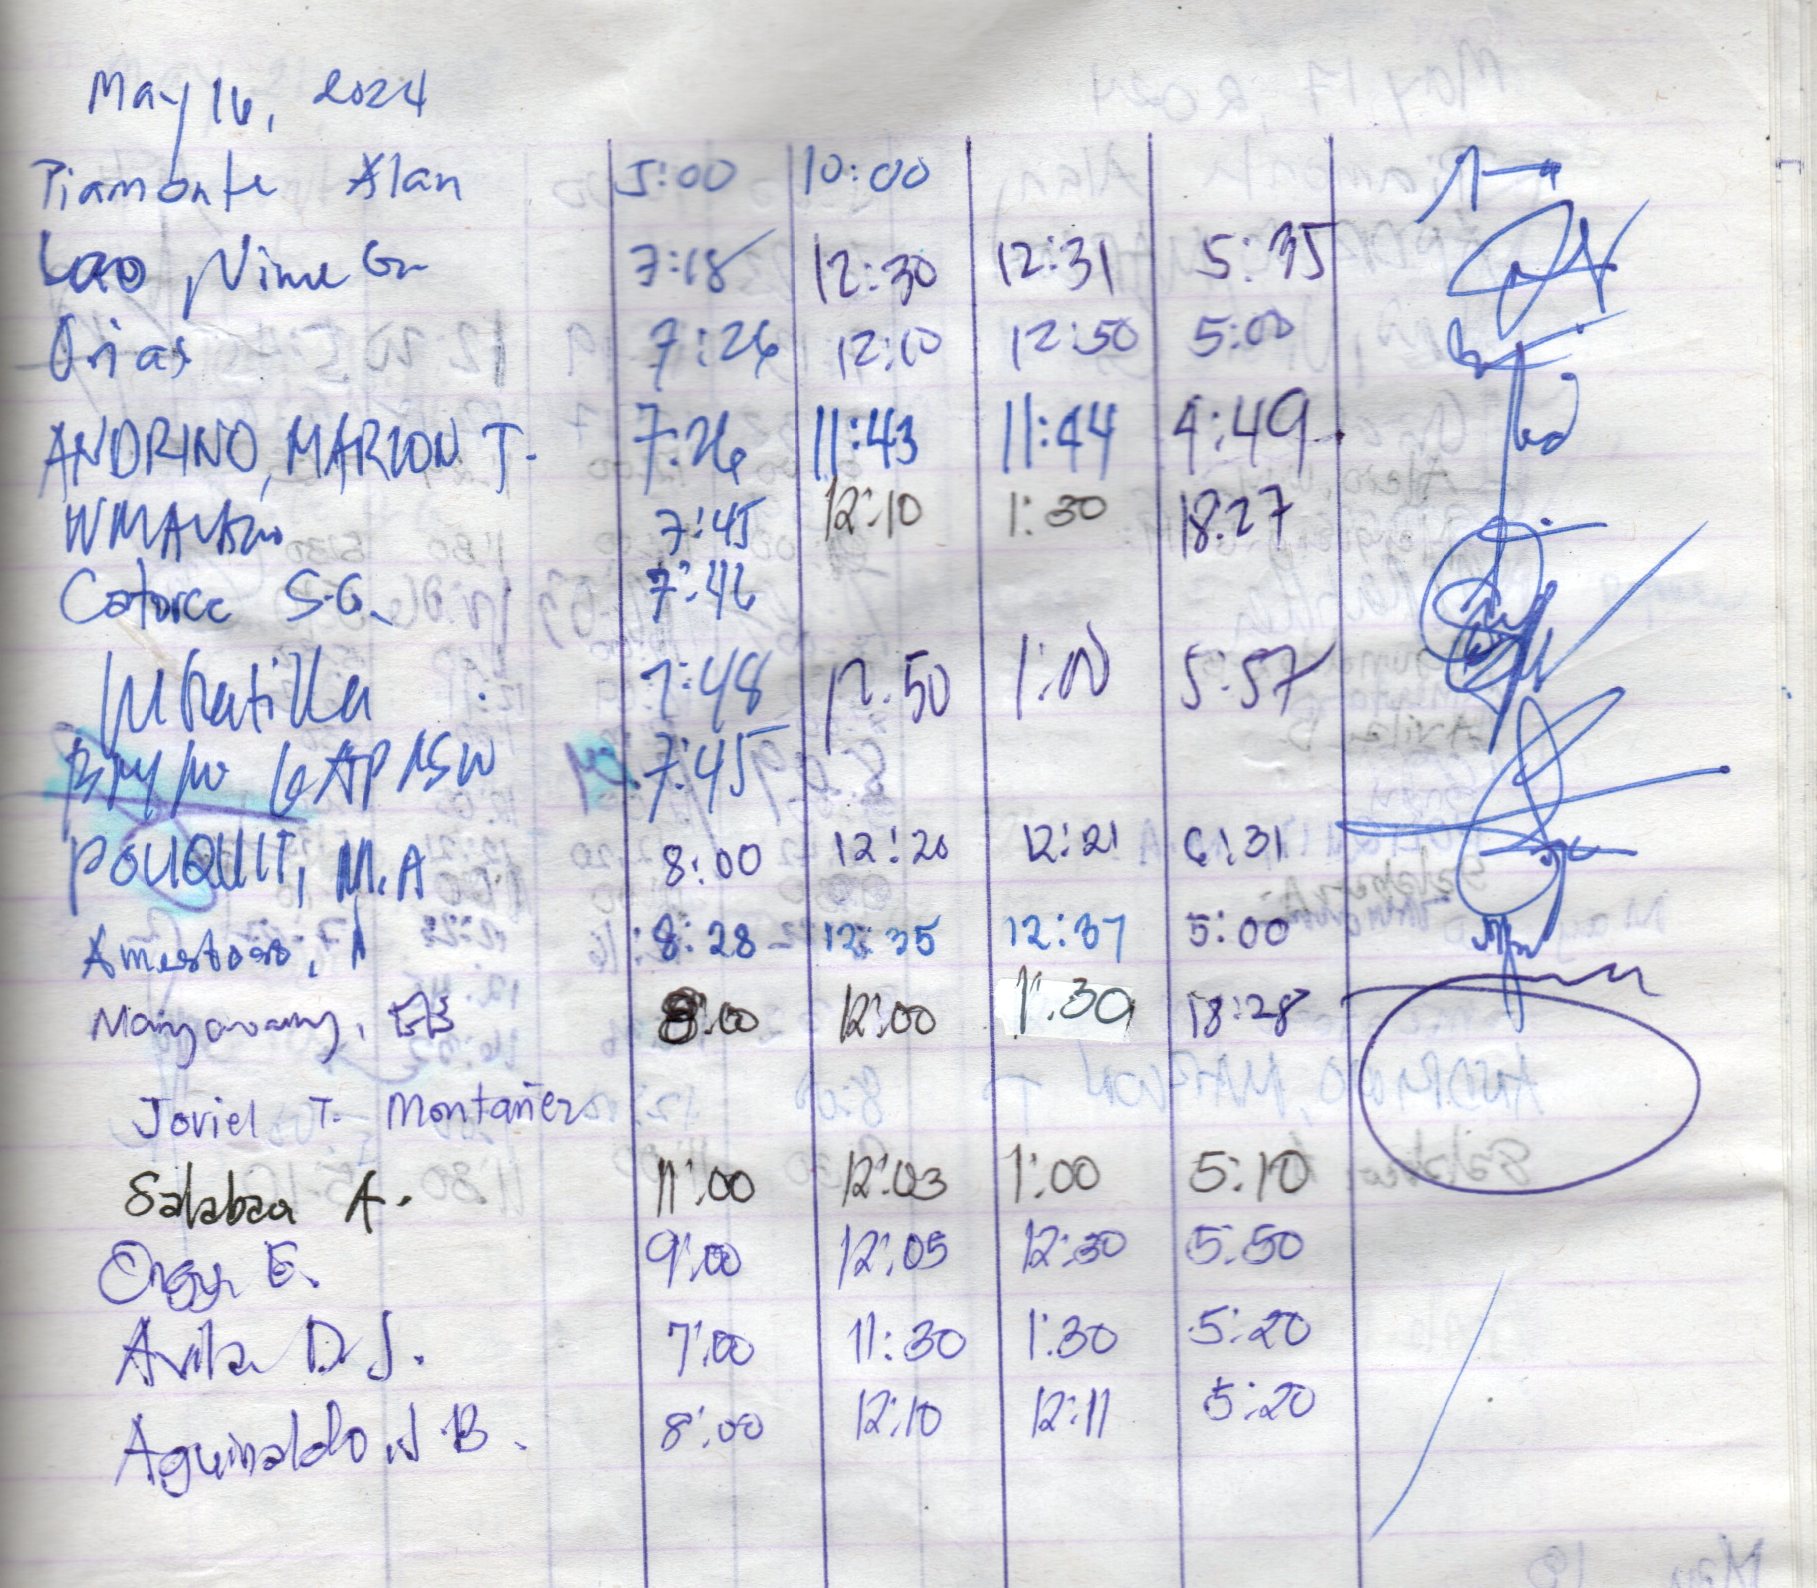 May 16, 2024
Piamonte Alan 5:00 10:00
Lao, Nime Gr 7:18 12:30 12:31 5:35
Orias 7:26 12:10 12:50 5:00
ANDRINO, MARION T. 7:26 11:43 11:44 4:49
7:45 12:10 1:30 18:27
Catorce S.G. 7:46
7:48 12:50 1:00 5:57
7:45
POUQUIT, M.A 8:00 12:20 12:21 6:31
8:28 12:35 12:37 5:00
8:00 12:00 1:30 18:28
Joviel T. Montañez
Salabao A. 11:00 12:03 1:00 5:10
E. 9:00 12:05 12:30 5:50
Avila D.J. 7:00 11:30 1:30 5:20
Aguinaldo J B. 8:00 12:10 12:11 5:20